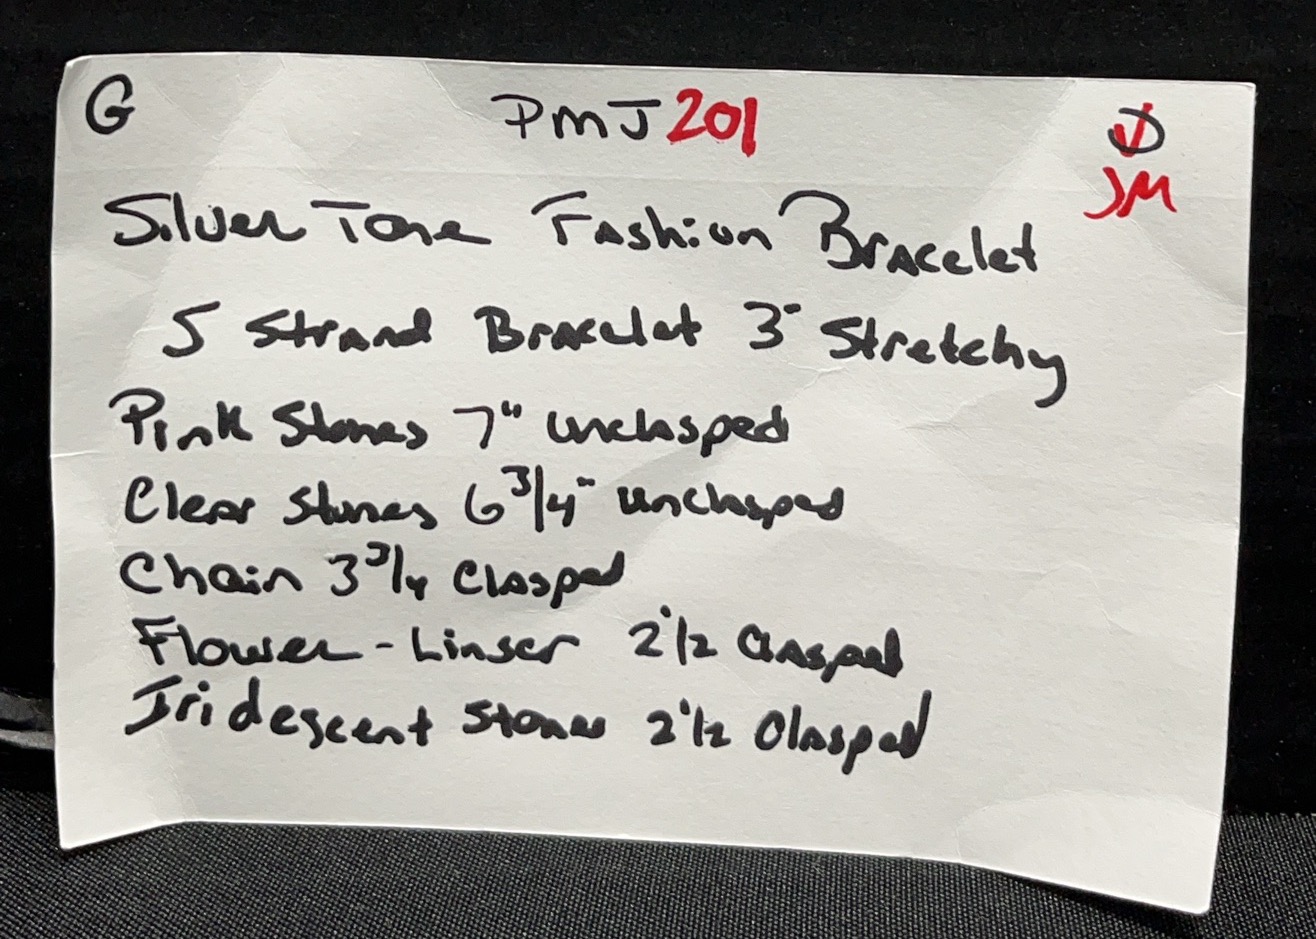 G PMJ 201 D
JM
Silver Tone Fashion Bracelet
5 Strand Bracelet 3" Stretchy
Pink Stones 7" unclasped
Clear Stones 6 3/4" unclasped
Chain 3 3/4 Clasped
Flower - Linser 2 1/2 Clasped
Iridescent Stones 2 1/2 Clasped